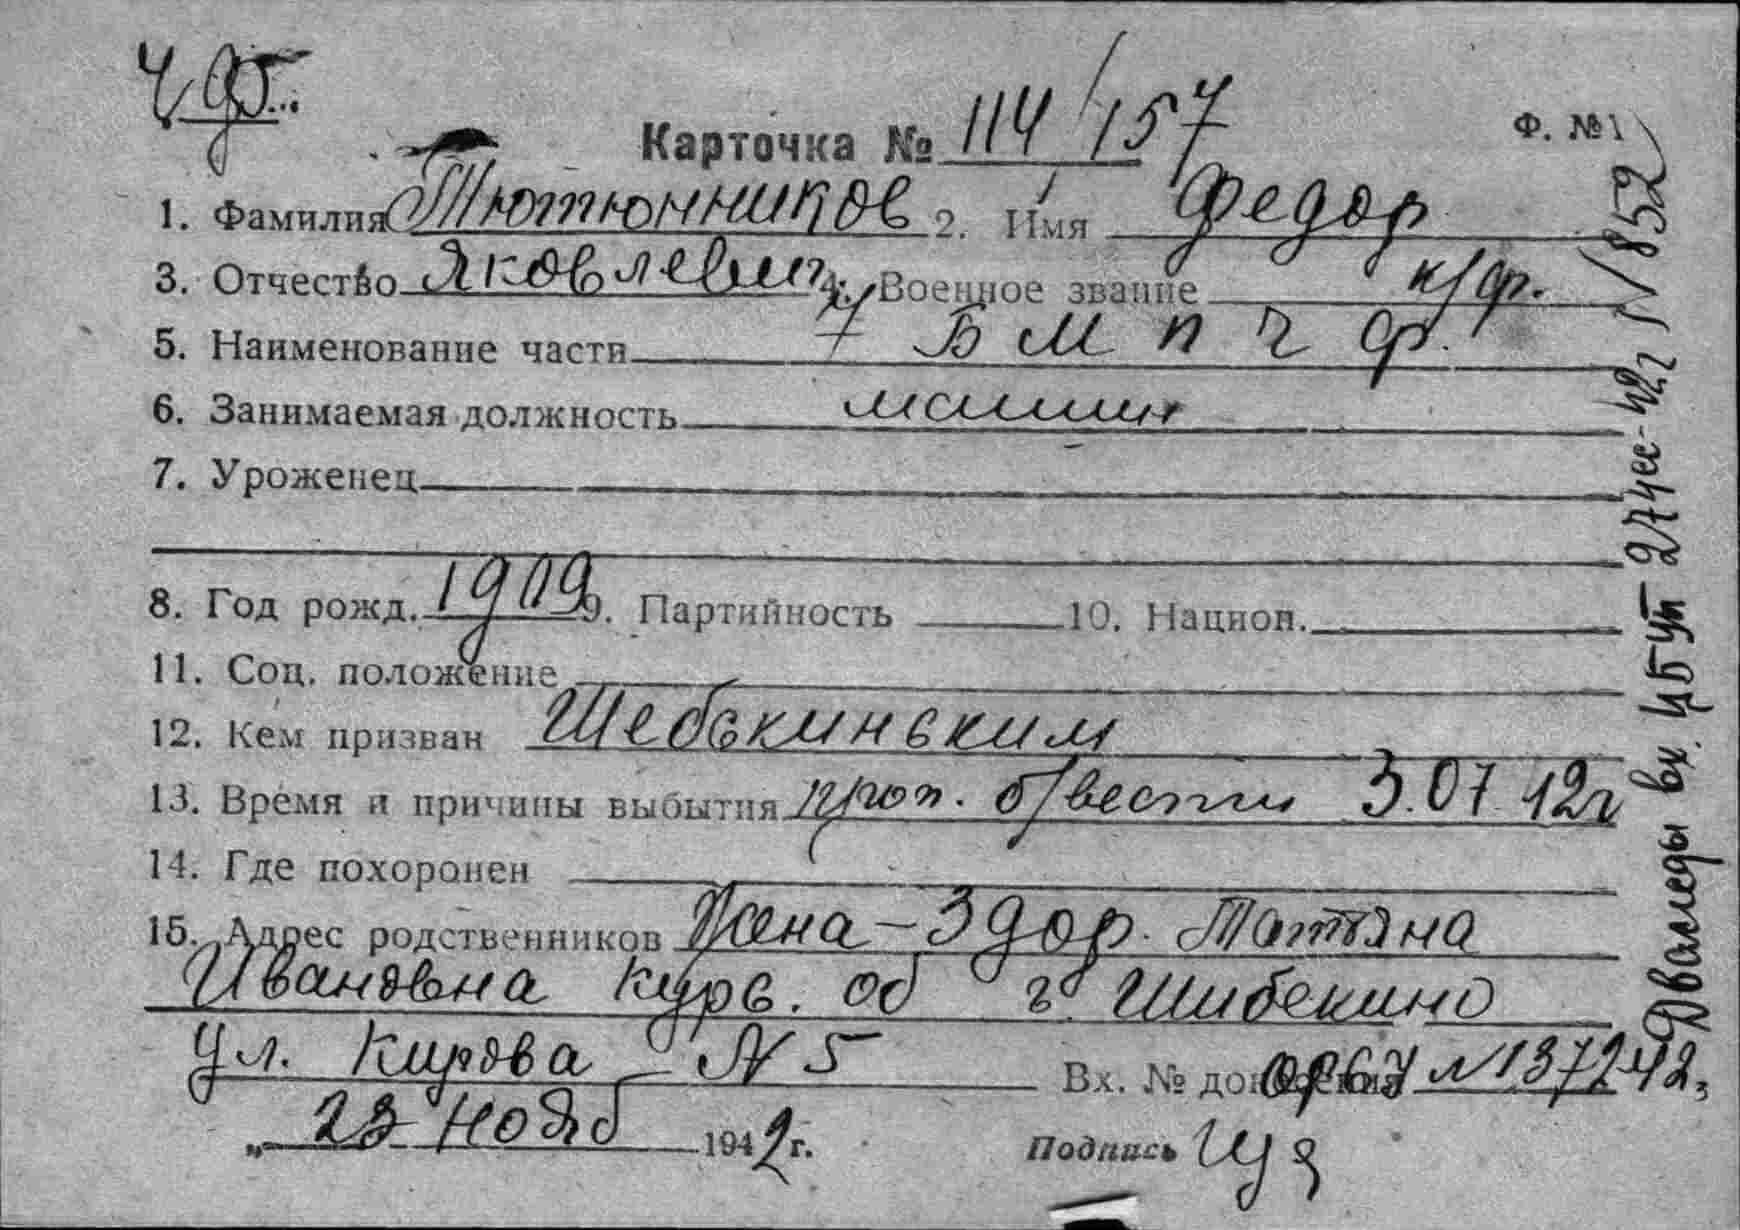 Ч, д5...
Карточка № 114/157
Ф. №1
1. Фамилия Тютюнников 2. Имя Федор
3. Отчество Яковлевич 4. Военное звание к/ф.
5. Наименование части 7 Б М П Ч Ф.
6. Занимаемая должность машин
7. Уроженец
8. Год рожд. 1909 9. Партийность 10. Национ.
11. Соц. положение
12. Кем призван Шебекинским
13. Время и причины выбытия проп. б/вести 3.07.42г
14. Где похоронен
15. Адрес родственников Жена - Здор. Татьяна
Ивановна Курс. об г. Шибекино
ул. Кирова N 5
Вх. № донесения N 1372 42г
„ 23 нояб 1942 г. Подпись
вх. ЦБУП 1852